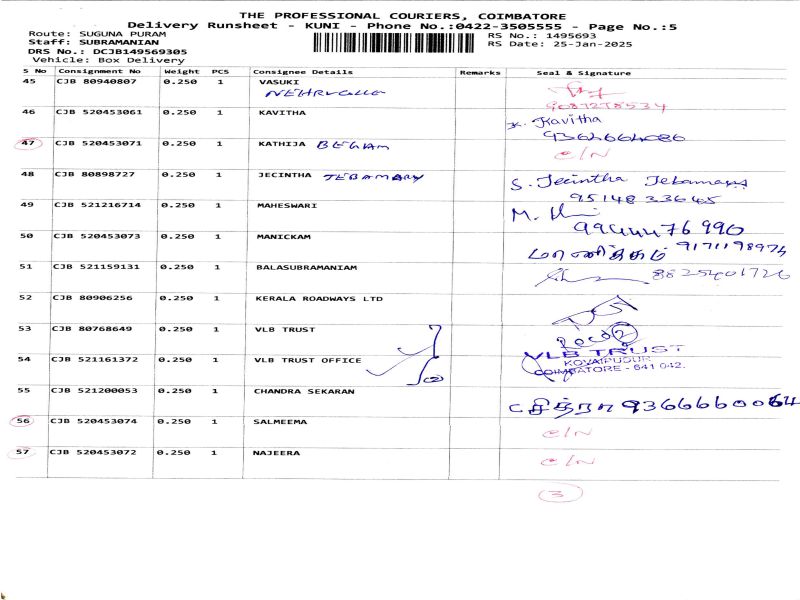 THE PROFESSIONAL COURIERS, COIMBATORE
Delivery Runsheet - KUNI - Phone No.:0422-3505555 - Page No.:5
Route: SUGUNA PURAM RS No.: 1495693
Staff: SUBRAMANIAN RS Date: 25-Jan-2025
DRS No.: DCJB149569305
Vehicle: Box Delivery
S No Consignment No Weight PCS Consignee Details Remarks Seal & Signature
45 CJB 80940807 0.250 1 VASUKI
9087278534
46 CJB 520453061 0.250 1 KAVITHA K. Kavitha
9364664086
47 CJB 520453071 0.250 1 KATHIJA BEGAM C/N
48 CJB 80898727 0.250 1 JECINTHA JEBAMARY S. Jecintha Jebamary
9514833645
49 CJB 521216714 0.250 1 MAHESWARI M.
9944476990
50 CJB 520453073 0.250 1 MANICKAM மாணிக்கம் 9171198974
51 CJB 521159131 0.250 1 BALASUBRAMANIAM 8825401726
52 CJB 80906256 0.250 1 KERALA ROADWAYS LTD
53 CJB 80768649 0.250 1 VLB TRUST
54 CJB 521161372 0.250 1 VLB TRUST OFFICE VLB TRUST
KOVAIPUDUR
COIMBATORE - 641 042.
55 CJB 521200053 0.250 1 CHANDRA SEKARAN C சித்ரா
56 CJB 520453074 0.250 1 SALMEEMA C/N
57 CJB 520453072 0.250 1 NAJEERA C/N
3